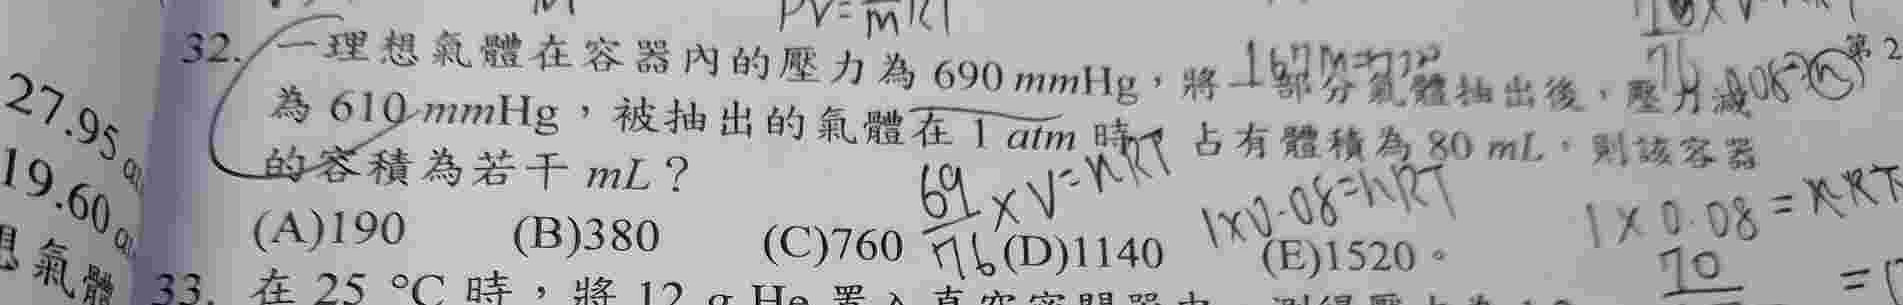 PV=mRT
32. 一理想氣體在容器內的壓力為 690 mmHg，將一部分氣體抽出後，壓力減
第 2
為 610 mmHg，被抽出的氣體在 1 atm 時，占有體積為 80 mL，則該容器
的容積為若干 mL？
69/76×V=nRT
1×0.08=nRT
1×0.08=nRT
(A)190 (B)380 (C)760 (D)1140 (E)1520。
70
33. 在 25 °C 時，將 12 g He 置入真空密閉器中
27.95
19.60
想氣體